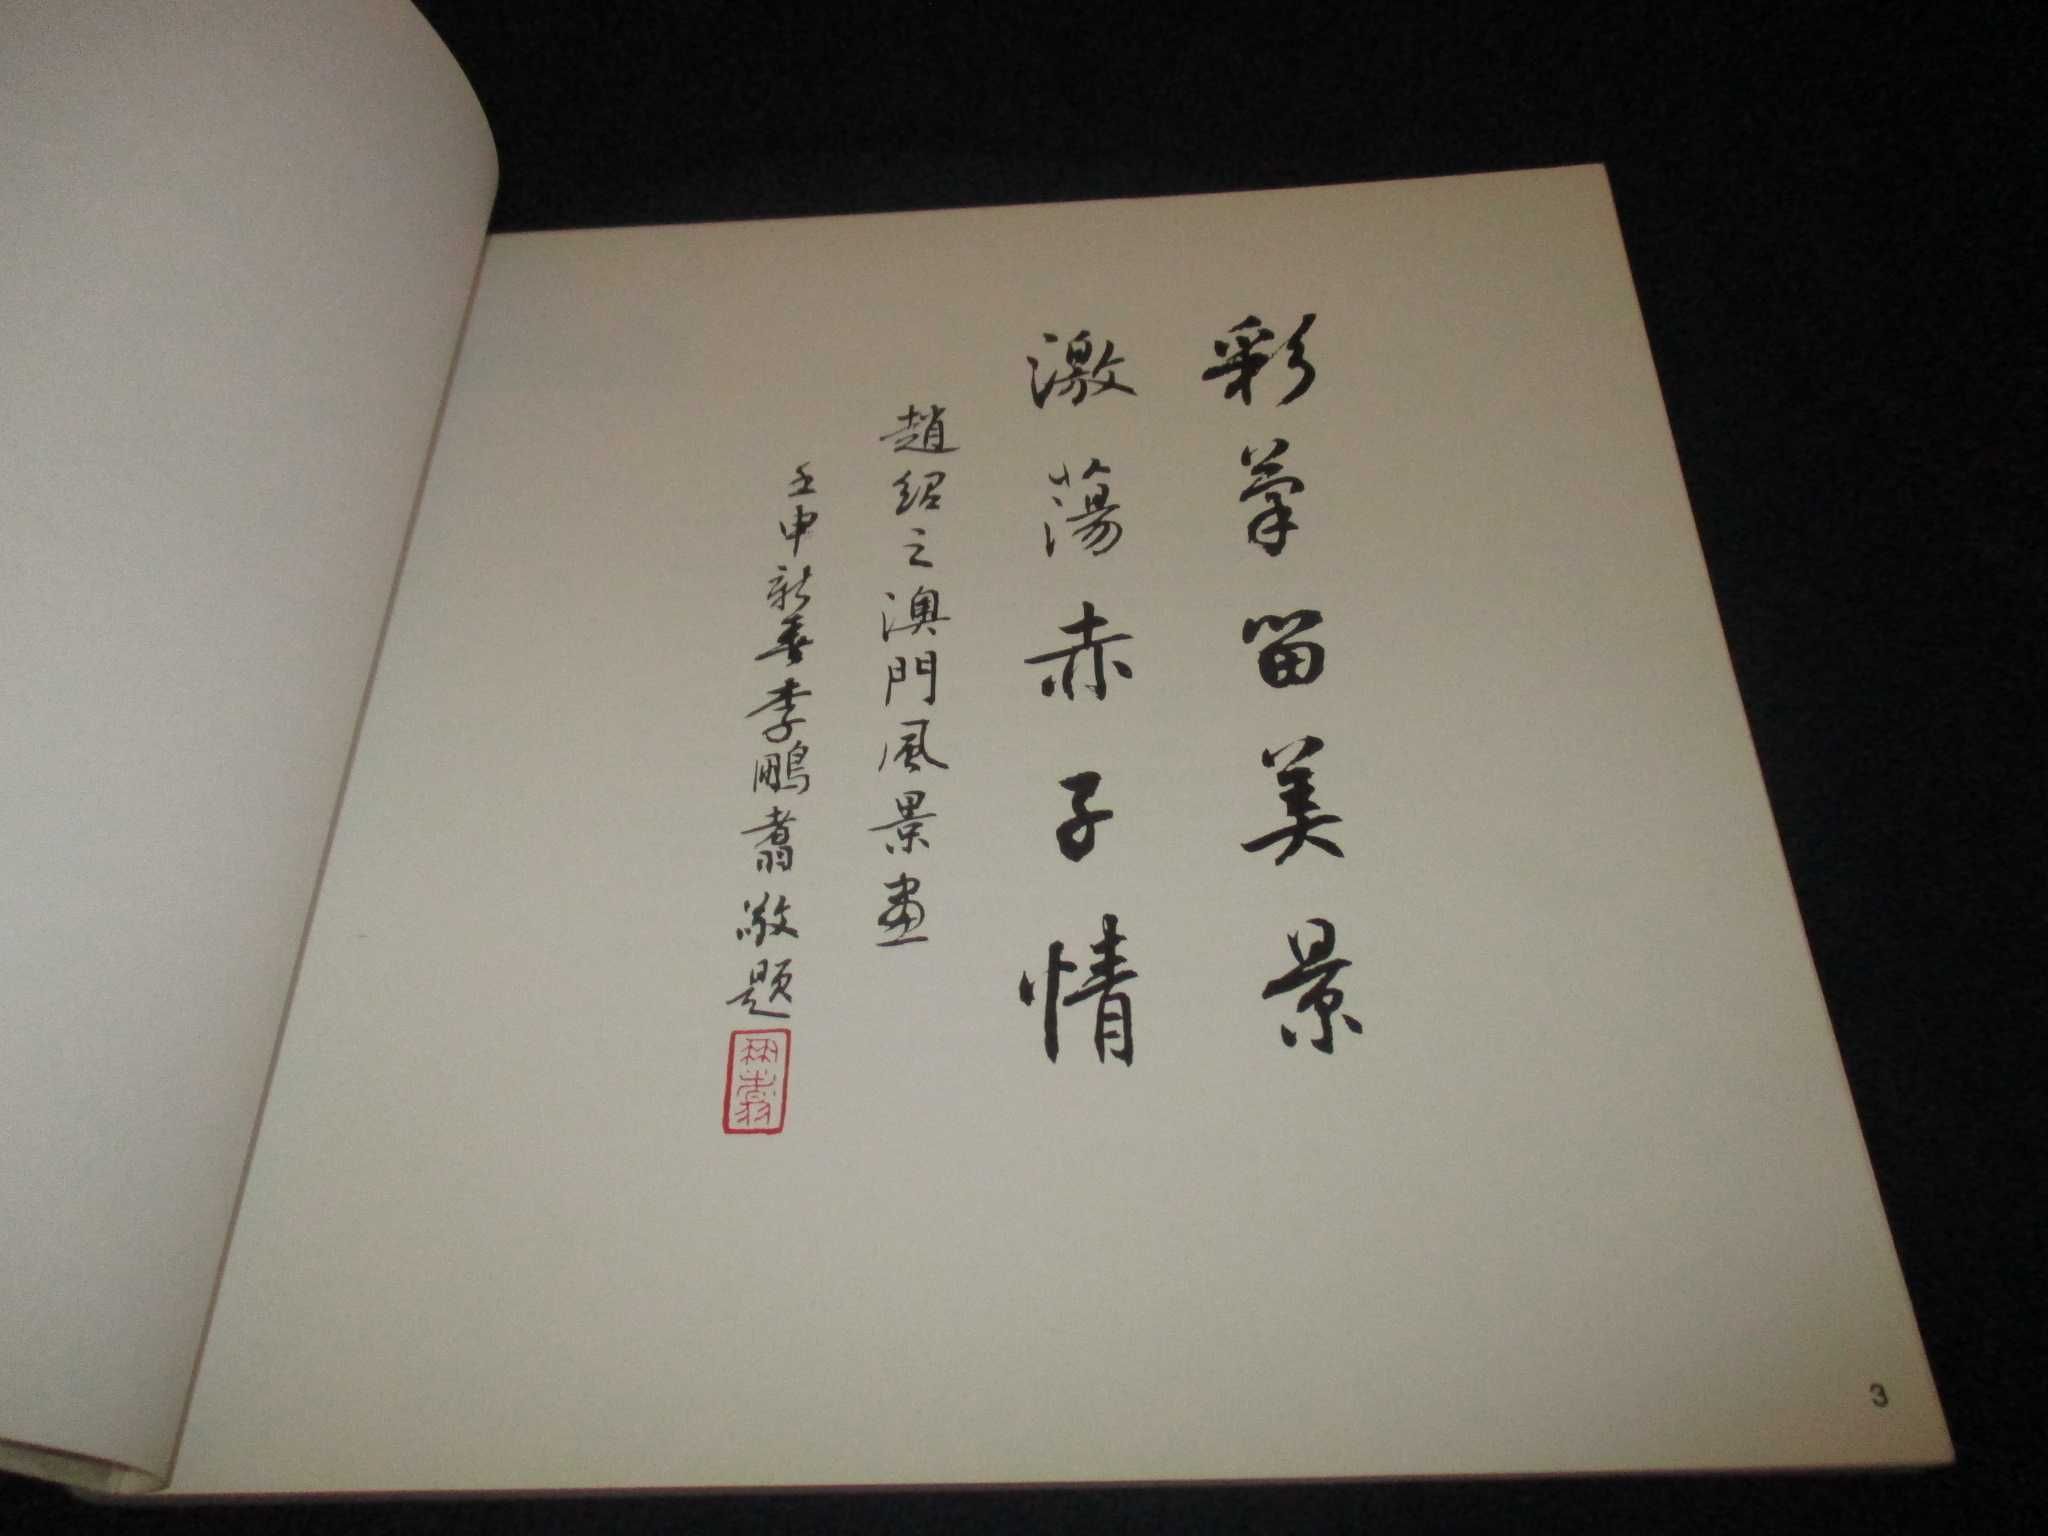 彩笔留美景
激蕩赤子情
趙紹之澳門風景畫
壬申新春李鵬翥敬題
鵬翥
3